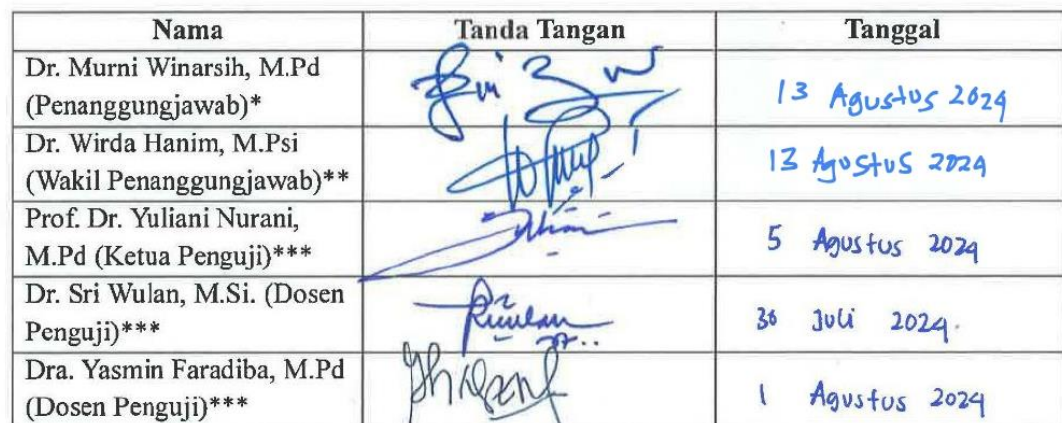 Nama Tanda Tangan Tanggal
Dr. Murni Winarsih, M.Pd
(Penanggungjawab)* 13 Agustus 2024
Dr. Wirda Hanim, M.Psi
(Wakil Penanggungjawab)** 13 Agustus 2024
Prof. Dr. Yuliani Nurani,
M.Pd (Ketua Penguji)*** 5 Agustus 2024
Dr. Sri Wulan, M.Si. (Dosen
Penguji)*** 30 Juli 2024.
Dra. Yasmin Faradiba, M.Pd
(Dosen Penguji)*** 1 Agustus 2024